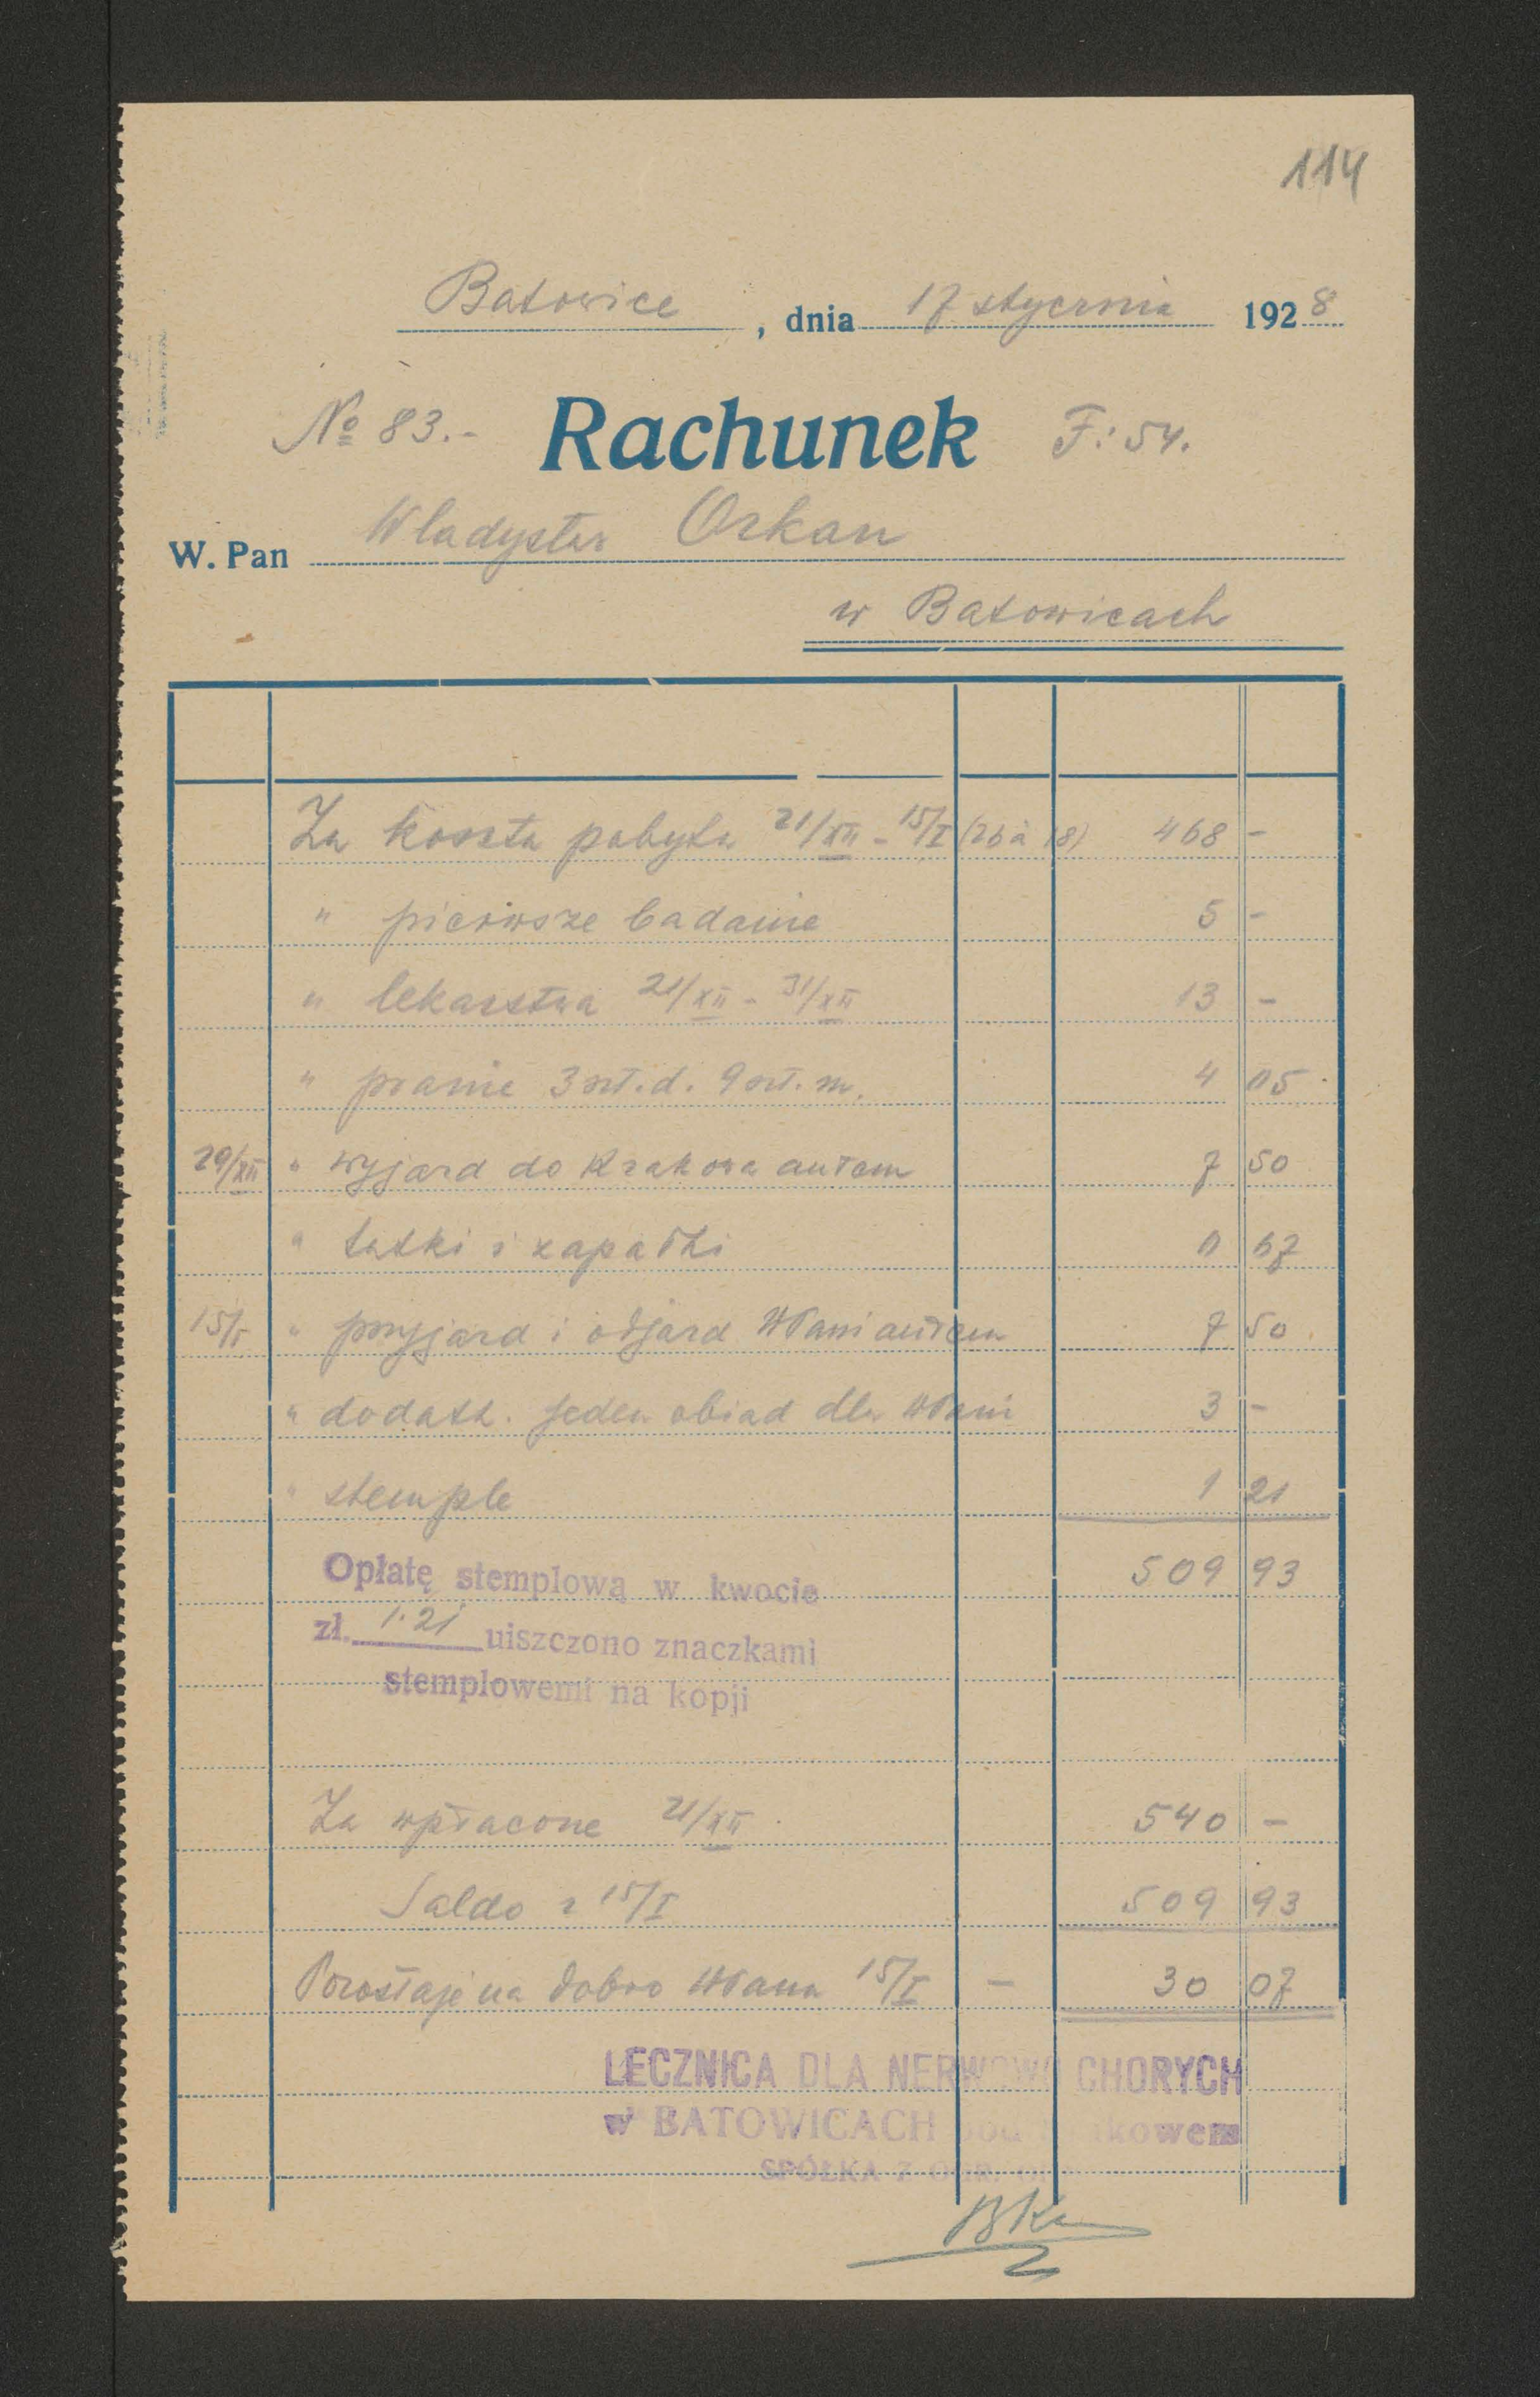 114
Batowice, dnia 17 stycznia 1928
No 83.- Rachunek F: 54.
W. Pan Władysław Orkan
w Batowicach
Za koszta pobytu 21/XII - 15/I (26 à 18) 468 -
" pierwsze badanie 5 -
" lekarstwa 21/XII - 31/XII 13 -
" pranie 3 szt. d. 9 szt. m. 4 05
29/XII " wyjazd do Krakowa autem 7 50
" tutki i zapałki 0 67
15/I " przyjazd i odjazd WPani autem 7 50
" dodatk. jeden obiad dla WPani 3 -
" stemple 1 21
509 93
Opłatę stemplową w kwocie
zł. 1.21 uiszczono znaczkami
stemplowemi na kopji
Za wpłacone 21/XII 540 -
Saldo z 15/I 509 93
Pozostaje na dobro WPana 15/I - 30 07
LECZNICA DLA NERWOWO CHORYCH
w BATOWICACH pod Krakowem
SPÓŁKA Z OGR.